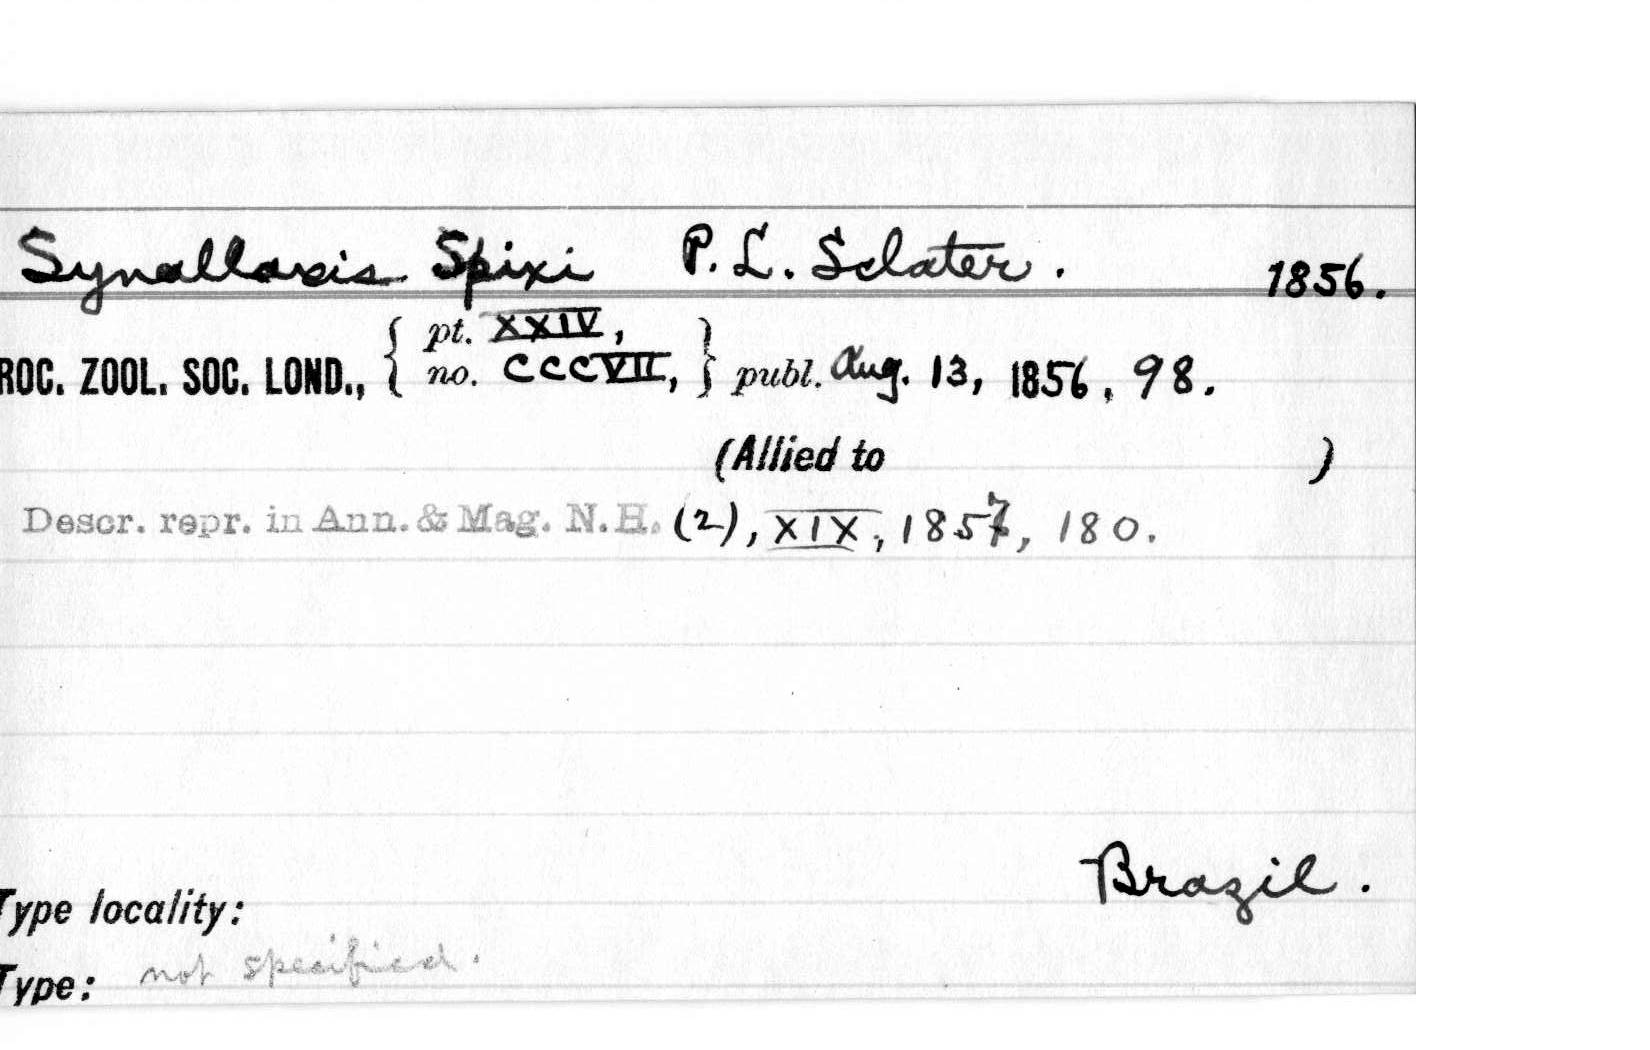 Synallaxis Spixi P. L. Sclater. 1856.
ROC. ZOOL. SOC. LOND., { pt. XXIV, no. CCCVII, } publ. Aug. 13, 1856, 98.
(Allied to )
Descr. repr. in Ann. & Mag. N.H. (2), XIX, 1857, 180.
Brazil.
Type locality:
Type: not specified.